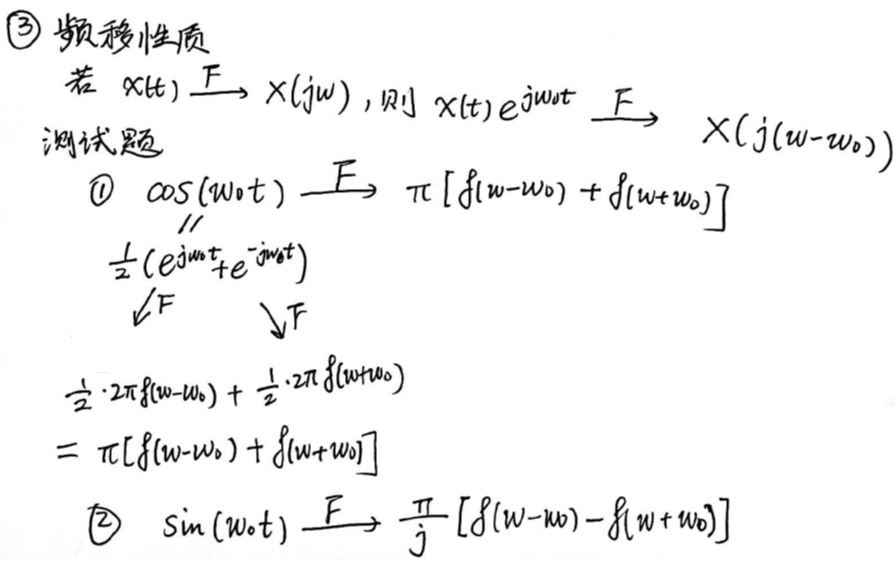 ③ 频移性质
若 x(t) F→ X(jw), 则 x(t)e^{jw₀t} F→ X(j(w-w₀))
测试题
① cos(w₀t) F→ π[δ(w-w₀)+δ(w+w₀)]
||
1/2(e^{jw₀t}+e^{-jw₀t})
↙F ↘F
1/2·2πδ(w-w₀)+1/2·2πδ(w+w₀)
= π[δ(w-w₀)+δ(w+w₀)]
② sin(w₀t) F→ π/j [δ(w-w₀)-δ(w+w₀)]